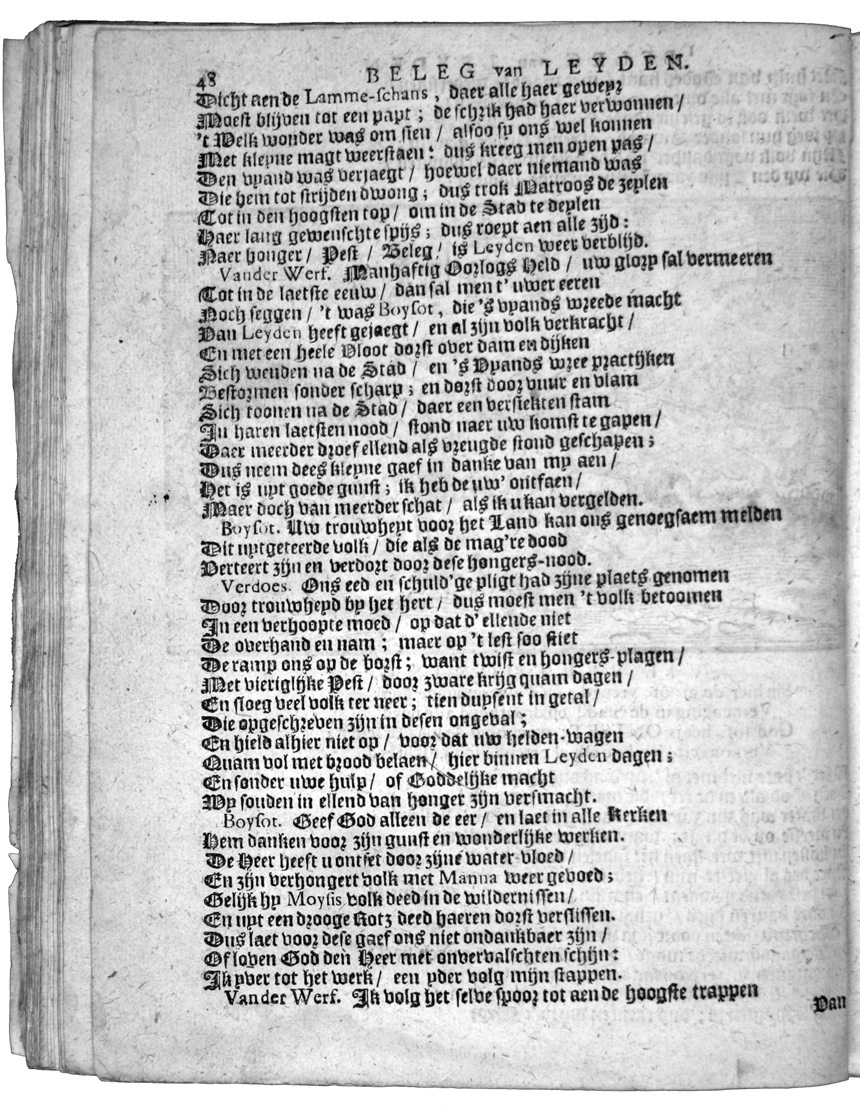 48
BELEG van LEYDEN.
Dicht aen de Lamme-schans, daer alle haer geweyr
Moest blijven tot een papt; de schrik had haer verwonnen/
't Welk wonder was om sien/ alsoo sy ons wel konnen
Met kleyne magt weerstaen: dus kreeg men open pas/
Den vyand was verjaegt/ hoewel daer niemand was
Die hem tot strijden dwong; dus trok Matroos de zeylen
Tot in den hoogsten top/ om in de Stad te deylen
Haer lang gewenschte spijs; dus roept aen alle zijd:
Naer honger/ Pest/ Beleg/ is Leyden weer verblijd.
Vander Werf. Manhaftig Oorlogs Held/ uw glory sal vermeeren
Tot in de laetste eeuw/ dan sal men t' uwer eeren
Noch seggen/ 't was Boysot, die 's vyands wreede macht
Van Leyden heeft gejaegt/ en al zijn volk verkracht/
En met een heele Vloot dorst over dam en dijken
Sich wenden na de Stad/ en 's Vyands wree practijken
Bestormen sonder scharp; en dorst door vuur en vlam
Sich toonen na de Stad/ daer een versiekten stam
In haren laetsten nood/ stond naer uw komst te gapen/
Daer meerder droef ellend als vreugde stond geschapen;
Dus neem dees kleyne gaef in danke van my aen/
Het is uyt goede gunst; ik heb de uw' ontfaen/
Maer doch van meerder schat/ als ik u kan vergelden.
Boysot. Uw trouwheyt voor het Land kan ons genoegsaem melden
Dit uytgeteerde volk/ die als de mag're dood
Verteert zijn en verdort door dese hongers-nood.
Verdoes. Ons eed en schuld'ge pligt had zijne plaets genomen
Door trouwheyd by het hert/ dus moest men 't volk betoomen
In een verhoopte moed/ op dat d' ellende niet
De overhand en nam; maer op 't lest soo stiet
De ramp ons op de borst; want twist en hongers-plagen/
Met vieriglijke Pest/ door zware krijg quam dagen/
En sloeg veel volk ter neer; tien duysent in getal/
Die opgeschreven zijn in desen ongeval;
En hield alhier niet op/ voor dat uw helden-wagen
Quam vol met brood belaen/ hier binnen Leyden dagen;
En sonder uwe hulp/ of Goddelijke macht
Wy souden in ellend van honger zijn versmacht.
Boysot. Geef God alleen de eer/ en laet in alle Kerken
Hem danken voor zijn gunst en wonderlijke werken.
De Heer heeft u ontset door zijne water-vloed/
En zijn verhongert volk met Manna weer gevoed;
Gelijk hy Moysis volk deed in de wildernissen/
En uyt een drooge Rotz deed haeren dorst verslissen.
Dus laet voor dese gaef ons niet ondankbaer zijn/
Of loven God den Heer met onvervalschten schijn:
Ik yver tot het werk/ een yder volg mijn stappen.
Vander Werf. Ik volg het selve spoor tot aen de hoogste trappen
Van